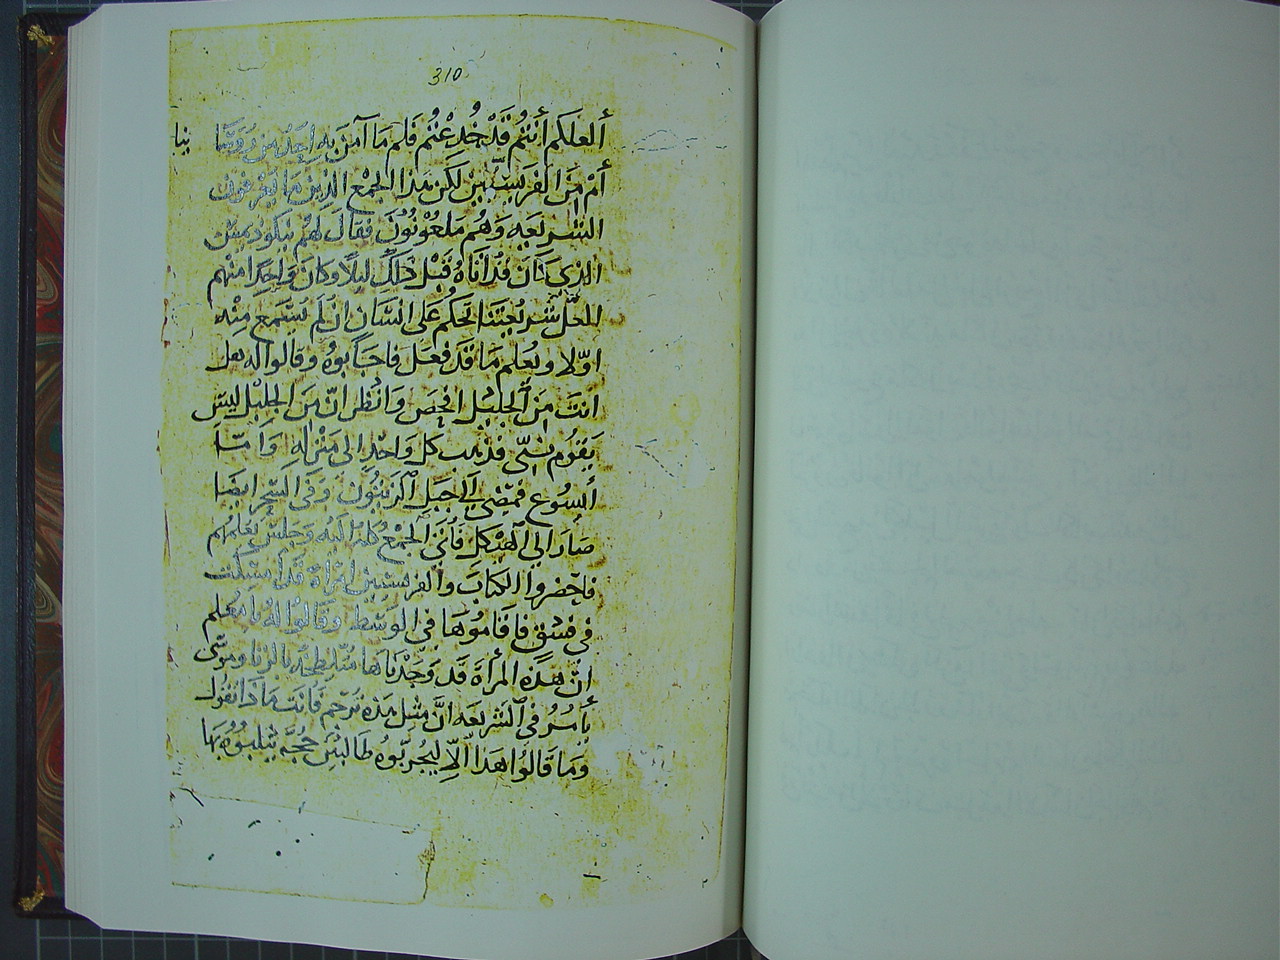 310
ألعلكم أنتم قد خُدِعْتُم فلم ما آمن به احد من رؤسا
ينا
أم من الفريسيين لكن هذا الجمع الذين ما يعرفون
الشريعه وهم ملعونون فقال لهم نيكوديمس
الذى كان قد اتاه قبل ذلك ليلا وكان واحدا منهم
العل شريعتنا تحكم على انسان ان لم تسمع منه
اوّلا ويعلم ما قد فعل فاجابوه وقالوا له هل
انت من الجليل افحص وانظر انّ من الجليل ليس
يقوم نبىّ فذهب كل واحد الى منزله وامّا
أيسوع فمضى إلى جبل الزيتون وفى السحر ايضا
صار الى الهيكل فأتى الجمع كله اليه وجلس يعلمهم
فاحضروا الكتاب والفريسيين امراة قد امسكت
فى فسق فاقاموها فى الوسط وقالوا له يا معلم
انّ هذه المرأة قد وجدناها بالزنا وموسى
يأمر فى الشريعه انّ مثل هذه ترجم فانت ماذا تقول
وما قالوا هذا الّا ليجربوه طالبين حجّه يثلبوه بها